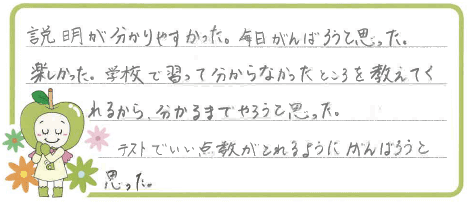 説明が分かりやすかった。毎日がんばろうと思った。
楽しかった。学校で習って分からなかったところを教えてく
れるから、分かるまでやろうと思った。
テストでいい点数がとれるようにがんばろうと
思った。